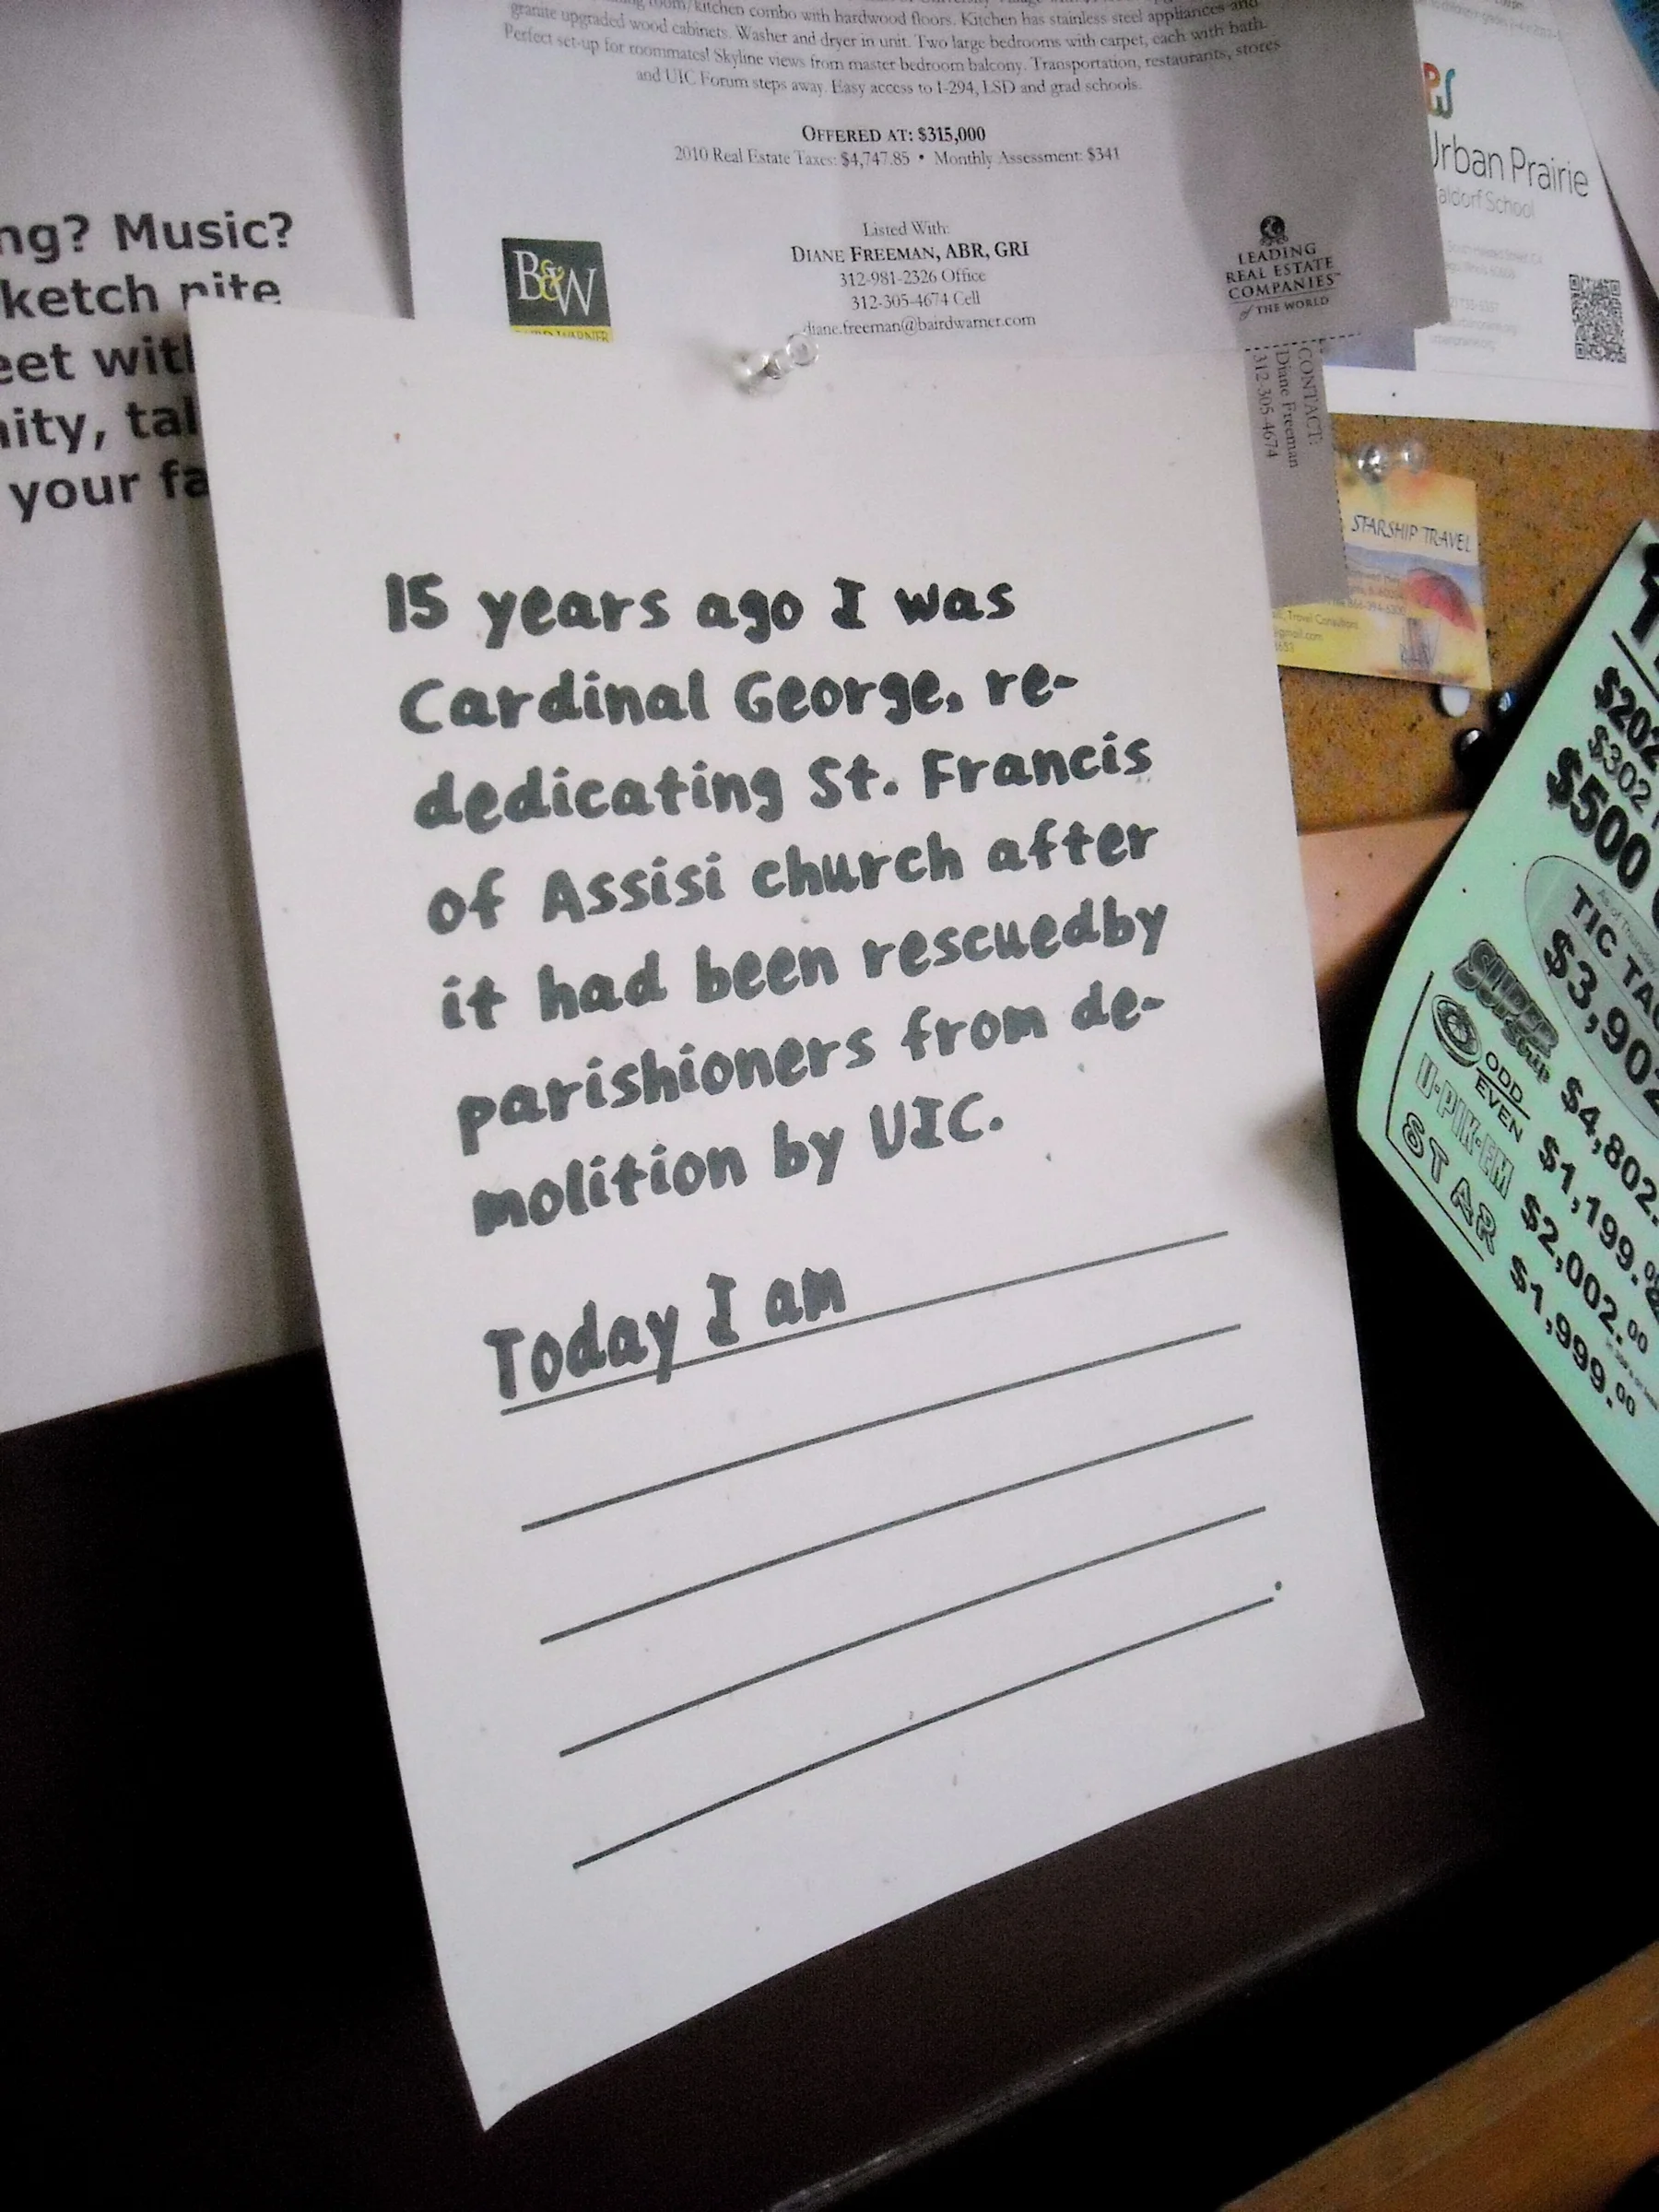 room/kitchen combo with hardwood floors. Kitchen has stainless steel appliances and
granite upgraded wood cabinets. Washer and dryer in unit. Two large bedrooms with carpet, each with bath.
Perfect set-up for roommates! Skyline views from master bedroom balcony. Transportation, restaurants, stores
and UIC Forum steps away. Easy access to I-294, LSD and grad schools.
OFFERED AT: $315,000
2010 Real Estate Taxes: $4,747.85 • Monthly Assessment: $341
Listed With:
DIANE FREEMAN, ABR, GRI
312-981-2326 Office
312-305-4674 Cell
diane.freeman@bairdwarner.com
B&W
LEADING
REAL ESTATE
COMPANIES
of THE WORLD
CONTACT:
Diane Freeman
312-305-4674
ng? Music?
ketch nite
eet with
nity, tal
your fa
Urban Prairie
aldorf School
STARSHIP TRAVEL
Travel Consultant
gmail.com
15 years ago I was
Cardinal George, re-
dedicating St. Francis
of Assisi church after
it had been rescuedby
parishioners from de-
molition by UIC.
Today I am
.
$202
$302
$500
TIC TAC
$3,902
SUPER
$4,802.
ODD
EVEN
$1,199.00
U-PIK-EM
$2,002.00
STAR
$1,999.00